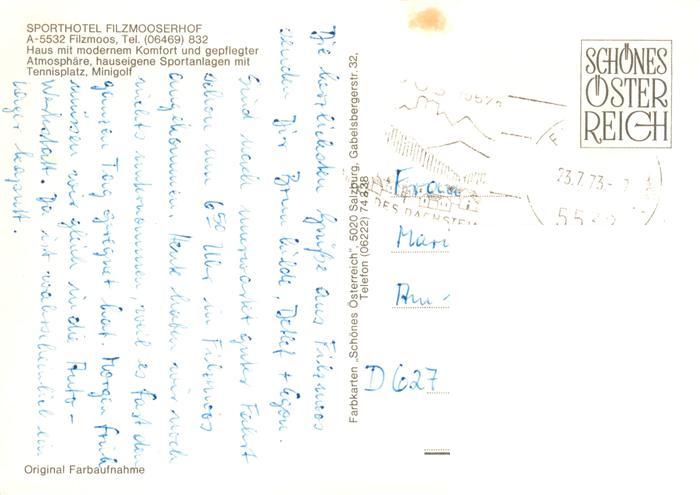 SPORTHOTEL FILZMOOSERHOF
A-5532 Filzmoos, Tel. (06469) 832
Haus mit modernem Komfort und gepflegter
Atmosphäre, hauseigene Sportanlagen mit
Tennisplatz, Minigolf
Die herzlichsten Grüße aus Filzmoos
senden Dir Brunhilde, Detlef + Egon.
Sind nach unerwartet guter Fahrt
schon um 6⁵⁰ Uhr in Filzmoos
angekommen. Heute haben wir noch
nichts unternommen, weil es fast den
ganzen Tag geregnet hat. Morgen früh
müssen wir gleich in die Auto-
Werkstatt. Da ist wahrscheinlich ein
kaputt.
Original Farbaufnahme
Farbkarten „Schönes Österreich", 5020 Salzburg, Gabelsbergerstr. 32,
Telefon (06222) 74 8 38
SCHÖNES
ÖSTER
REICH
23.7.73
DES DACHSTEIN
Frau
Mari
Am
D 627